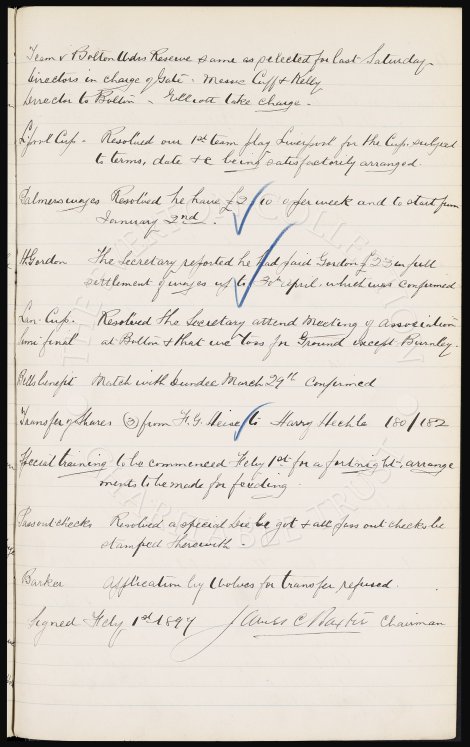 Team v Bolton Wdrs Reserve same as selected for last Saturday
Directors in charge of Gate - Messrs Cuff & Kelly
Director to Bolton - Elliott take charge.
L'pool Cup - Resolved our 1st team play Liverpool for the Cup, subject
to terms, date &c being satisfactorily arranged.
Palmers wages Resolved he have £2/10 per week and to start from
January 2nd.
Gordon The Secretary reported he had paid Gordon £23 in full
settlement of wages up to 30th April which was confirmed
Lan. Cup. Resolved the Secretary attend Meeting of Association
semi final at Bolton & that we toss for Ground except Burnley.
Bells benefit Match with Dundee March 29th confirmed
Transfer of Shares (3) from H.G. to Harry 180/182
Special training to be commenced Feby 1st for a fortnight, arrange
ments to be made for feeding.
Pass out checks Resolved a special die be got & all pass out checks be
stamped therewith.
Barker Application by Wolves for transfer refused.
Signed Feby 1st 1897 James C Baxter Chairman